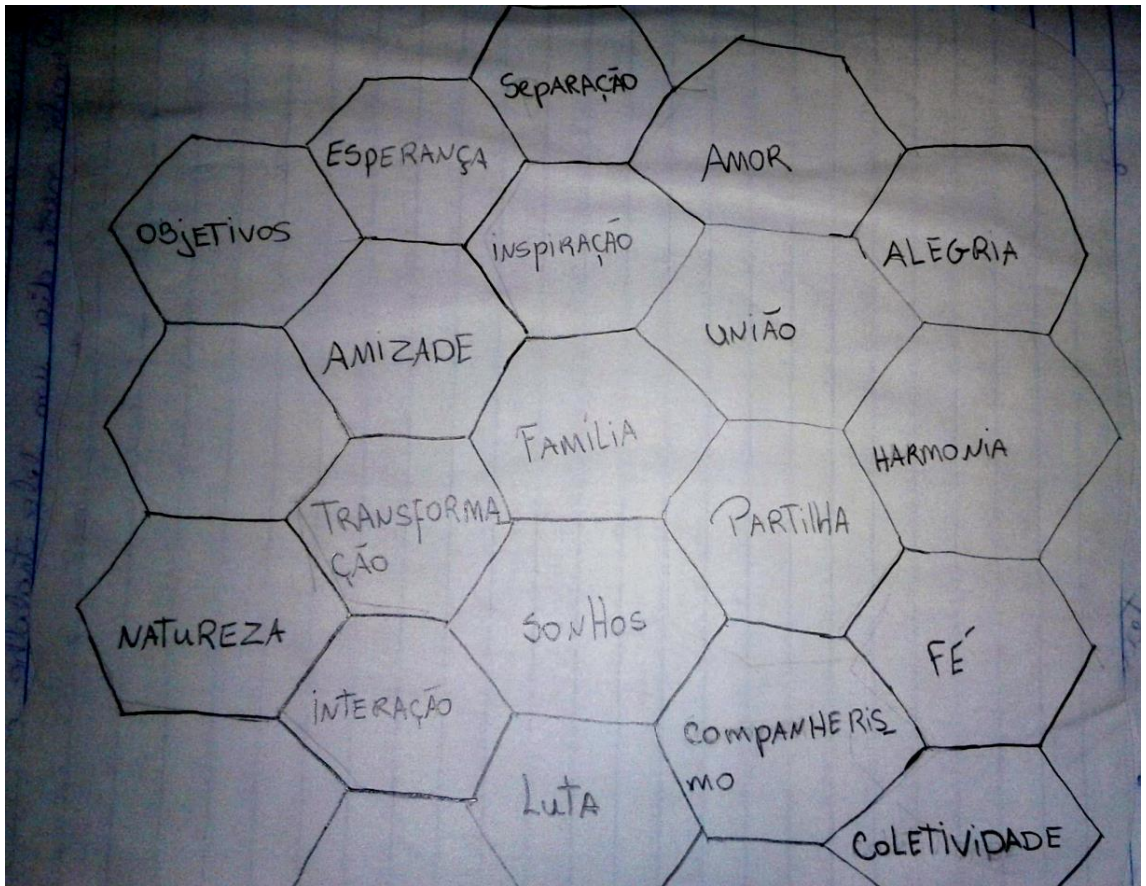 SepARAÇÃO
ESpERANÇA
AMOR
OBjETIVOS
iNSpiRAÇÃO
ALEGRIA
UNIÃO
AMIZADE
FAMÍLIA
HARMONIA
TRANSFORMA
ÇÃO
PARTILHA
NATUREZA
SONHOS
FÉ
INTERAÇÃO
COMPANHERIS
MO
LUTA
COLETIVIDADE